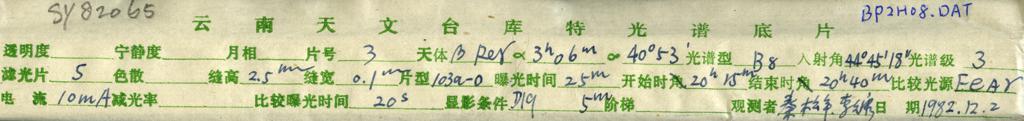 SY82065
云南天文台库特光谱底片 BP2H08.DAT
透明度 宁静度 月相 片号 3 天体 β Per α 3h06m α 40°53' 光谱型 B8 入射角 44°45'18" 光谱级 3
滤光片 5 色散 缝高 2.5mm 缝宽 0.1mm 片型 103a-O 曝光时间 25m 开始时角 20h15m 结束时角 20h40m 比较光源 FeAr
电流 10mA 减光率 比较曝光时间 20s 显影条件 D19 5m 阶梯 观测者 日期 1982.12.2